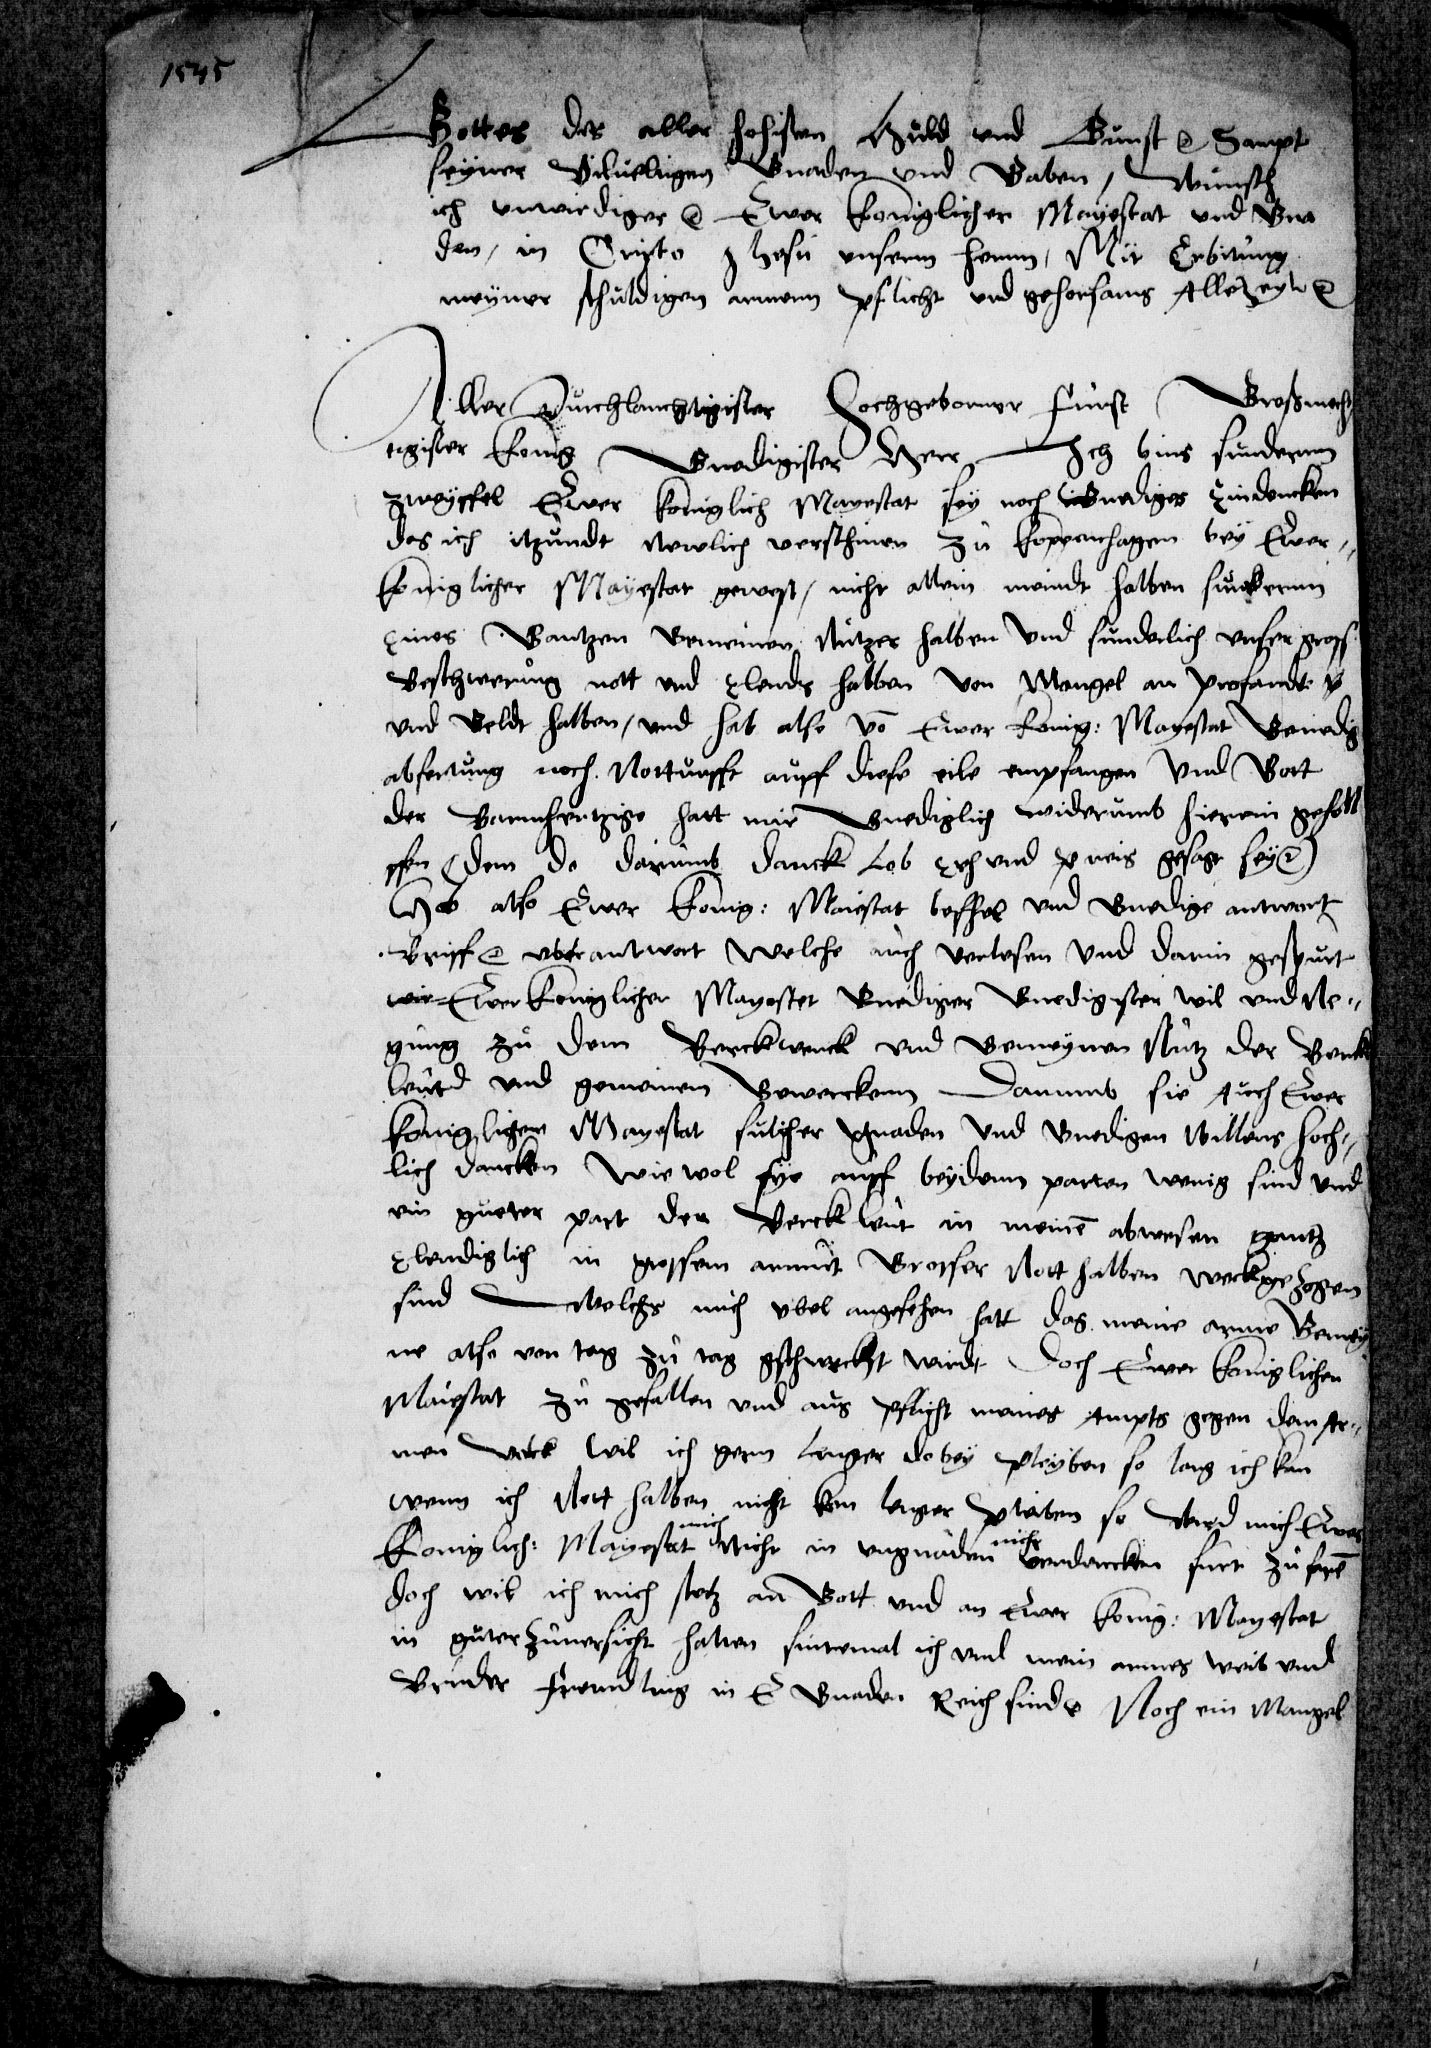 1545
Gottes des aller hohisten Huld und Gunst Sampt
seyner vilueltigen Gnaden und Gaben, wunsch
ich unwirdiger Ewer koniglicher Mayestat und Gna
den, in Cristo Jhesu unserm hernn, Mit Erbitung
meyner schuldigen armenn pflicht und gehorsams Allezeytt
Aller Durchlauchtigister Hochgeborner Furst Großmech
tigister konig Gnedigister Herr Ich bins sunderenn
zweyffel Ewer koniglich Mayestat sey noch Gnediges Eindencken
das ich itzundt newlich verschinen zu koppenhagen bey Ewer
koniglicher Mayestat gewest, nicht allein meindt halben sunderenn
eines Gantzen Gemeinen Nutzes halben und sunderlich unser gross
Beschwerung nott und Elends halben von Mangel an profandt
und Geldt halben, und hab also vo Ewer konig: Mayestat Genedig
abfertung noch Notturfft auff diese eile empfangen und Gott
der Barmhertzige hatt mir Gnediglich widerumb hierein geholf
ffen (dem do darumb danck Lob Eh und preis gesagt sey)
Hab also Ewer konig: Maiestat beffhel und Gnedige antwort
Briff uberantwort welche auch verlesen und darin gespurt
wir Ewer koniglicher Mayestet Gnediger Gnedigister wil und Ne
gung zu dem Berckwerck und Gemeynen Nutz der Berck
leut und gemeinem Gewerckenn Darumb sie Auch Ewer
konigligen Mayestat sulcher Gnaden und Gnedigen Willens hoch
lich dancken Wiewol sye auff beydenn parten wenig sind und
ein gueter part der Berckleut in meine abwesen gantz
Elendiglich in grossem armut Grosser Nott halben weckgezogen
sind Welchs mich ubel angesehen hatt das meine arme Gemey
ne also von tag zu tag geschwecht wirdt Doch Ewer koniglichen
Maiestat zu gefallen und aus pflicht meines Ampts gegen dem Ar
men volck wil ich gern lenger dobey pleyben so lang ich kan
wenn ich Nott halben nicht kan lenger pleiben so wird mich Ewer
koniglich: Mayestat mich Nicht in ungnaden nicht verdencken furt zu faren
doch wil ich mich stetz an Gott und an Ewer konig: Mayestat
in guter zuuersicht halten sintemal ich und mein armes weib und
Bruder Fremdling in E Gnaden Reich sind Noch ein Mangel